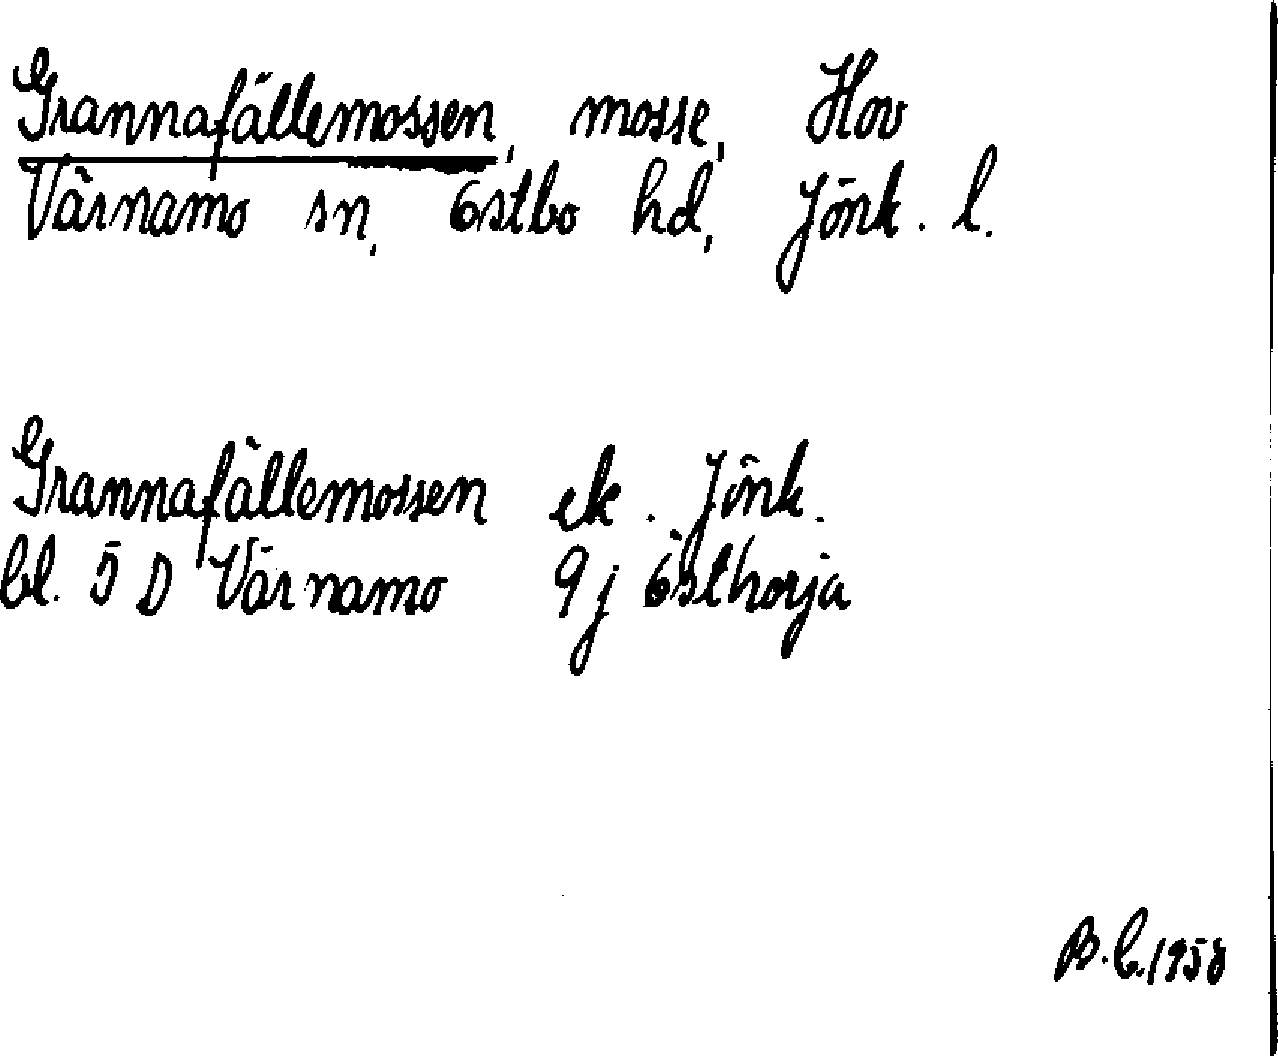 Grannafällemossen, mosse, Hov
Värnamo sn, Östbo hd, Jönk. l.
Grannafällemossen ek. Jönk.
bl. 5 D Värnamo 9 j Östhorja
B.C. 1958